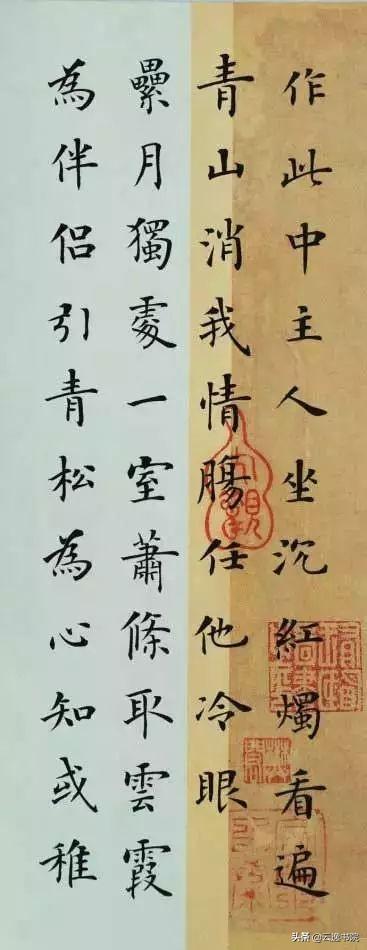 作此中主人坐沉紅燭看遍
青山消我情腸任他冷眼
纍月獨處一室蕭條取雲霞
為伴侶引青松為心知或稚
头条 @云逸书院